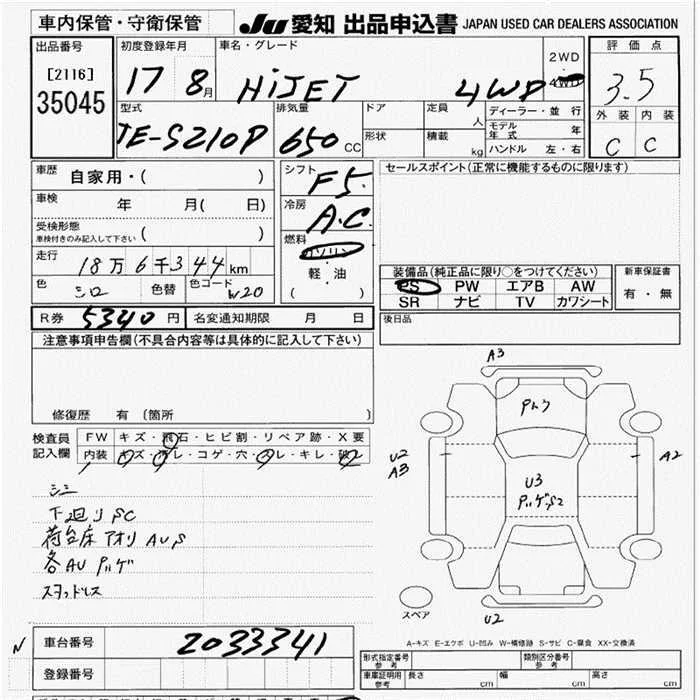 車内保管・守衛保管
JU 愛知 出品申込書 JAPAN USED CAR DEALERS ASSOCIATION
出品番号
[2116]
35045
初度登録年月
17 8月
車名・グレード
HiJET 4WD
2WD
・
4WD
評価点
3.5
外装 内装
C C
型式
TE-S210P
排気量
650 CC
ドア
形状
定員 人
積載 kg
ディーラー・並行
モデル年式 年
ハンドル 左・右
車歴
自家用・( )
車検 年 月( 日)
受検形態
車検付きのみ記入して下さい ( )
走行
18万6千344km
色 シロ 色替 色コード W20
シフト F5
冷房 A.C
燃料
ガソリン
・
軽・油
( )
セールスポイント(正常に機能するものに限ります)
装備品(純正品に限り○をつけてください)
PS PW エアB AW
SR ナビ TV カワシート
新車保証書
有・無
R券 5340円 名変通知期限 月 日
後日品
注意事項申告欄(不具合内容等は具体的に記入して下さい)
修復歴 有(箇所 )
検査員
記入欄
FW キズ・飛石・ヒビ割・リペア跡・X要
内装 キズ・汚レ・コゲ・穴・スレ・キレ・破レ
シミ
下廻りSC
荷台床アオリAUS
各AUPサゲ
スタッドレス
A3
U2
A3
U3
A2
スペア
U2
A-キズ E-エクボ U-凹み W-補修跡 S-サビ C-腐食 XX-交換済
N
車台番号 2033341
登録番号
形式指定番号
参考
類別区分番号
参考
車庫証明用
参考
長さ cm 幅 cm 高さ cm